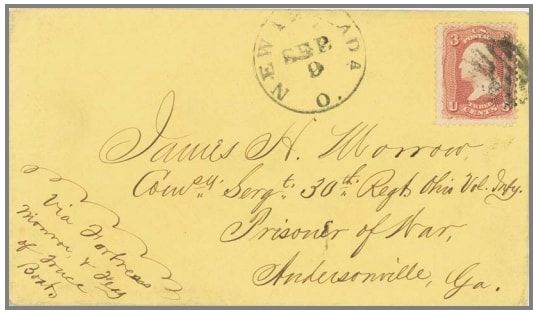 NEW
ADA
O.
SEP
9
3
U.S.
POSTAGE
3
U
THREE
CENTS
James H. Morrow,
Com'ey. Sergt. 30th. Regt. Ohio Vol. Infy.
Prisoner of War,
Andersonville, Ga.
Via Fortress
Monroe, & Flag
of Truce
Boats